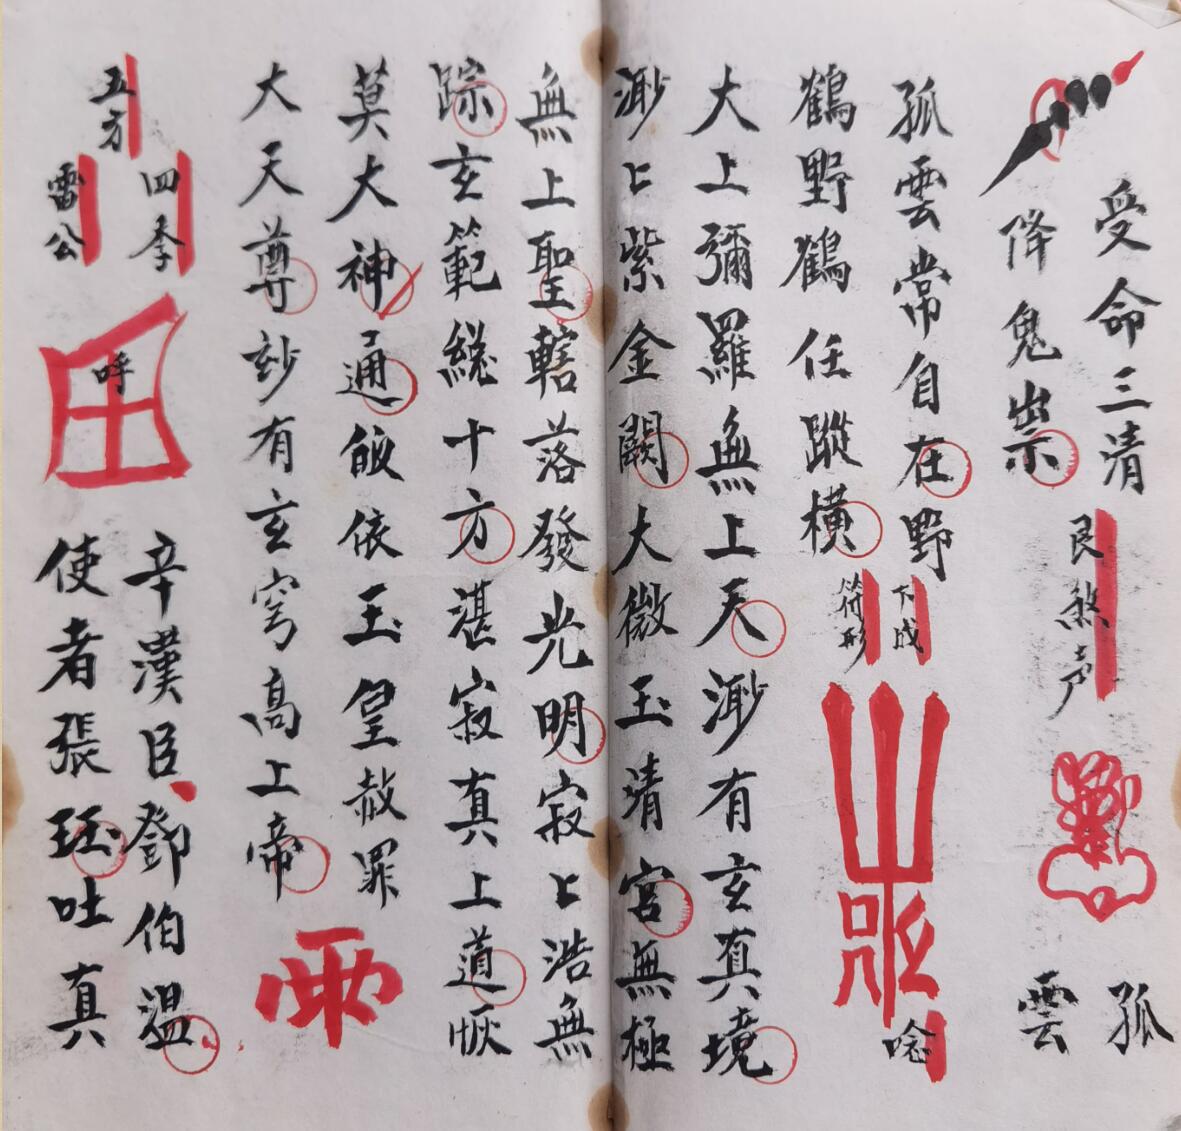 受命三清
降鬼祟
艮煞声
孤
雲
孤雲常自在野
鶴野鶴任蹤橫
下成
符形
唸
大上彌羅無上天渺有玄真境
渺〻紫金闕大微玉清宮無極
無上聖轄落發光明寂〻浩無
踪玄範総十方湛寂真上道恢
莫大神通皈依玉皇赦罪
大天尊玅有玄穹高上帝
五方
四季
雷公
呼
辛漢臣鄧伯温
使者張珏吐真